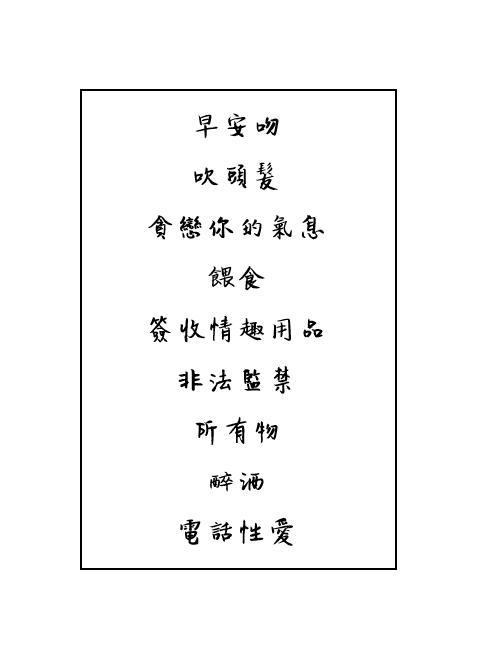 早安吻
吹頭髮
貪戀你的氣息
餵食
簽收情趣用品
非法監禁
所有物
醉酒
電話性愛